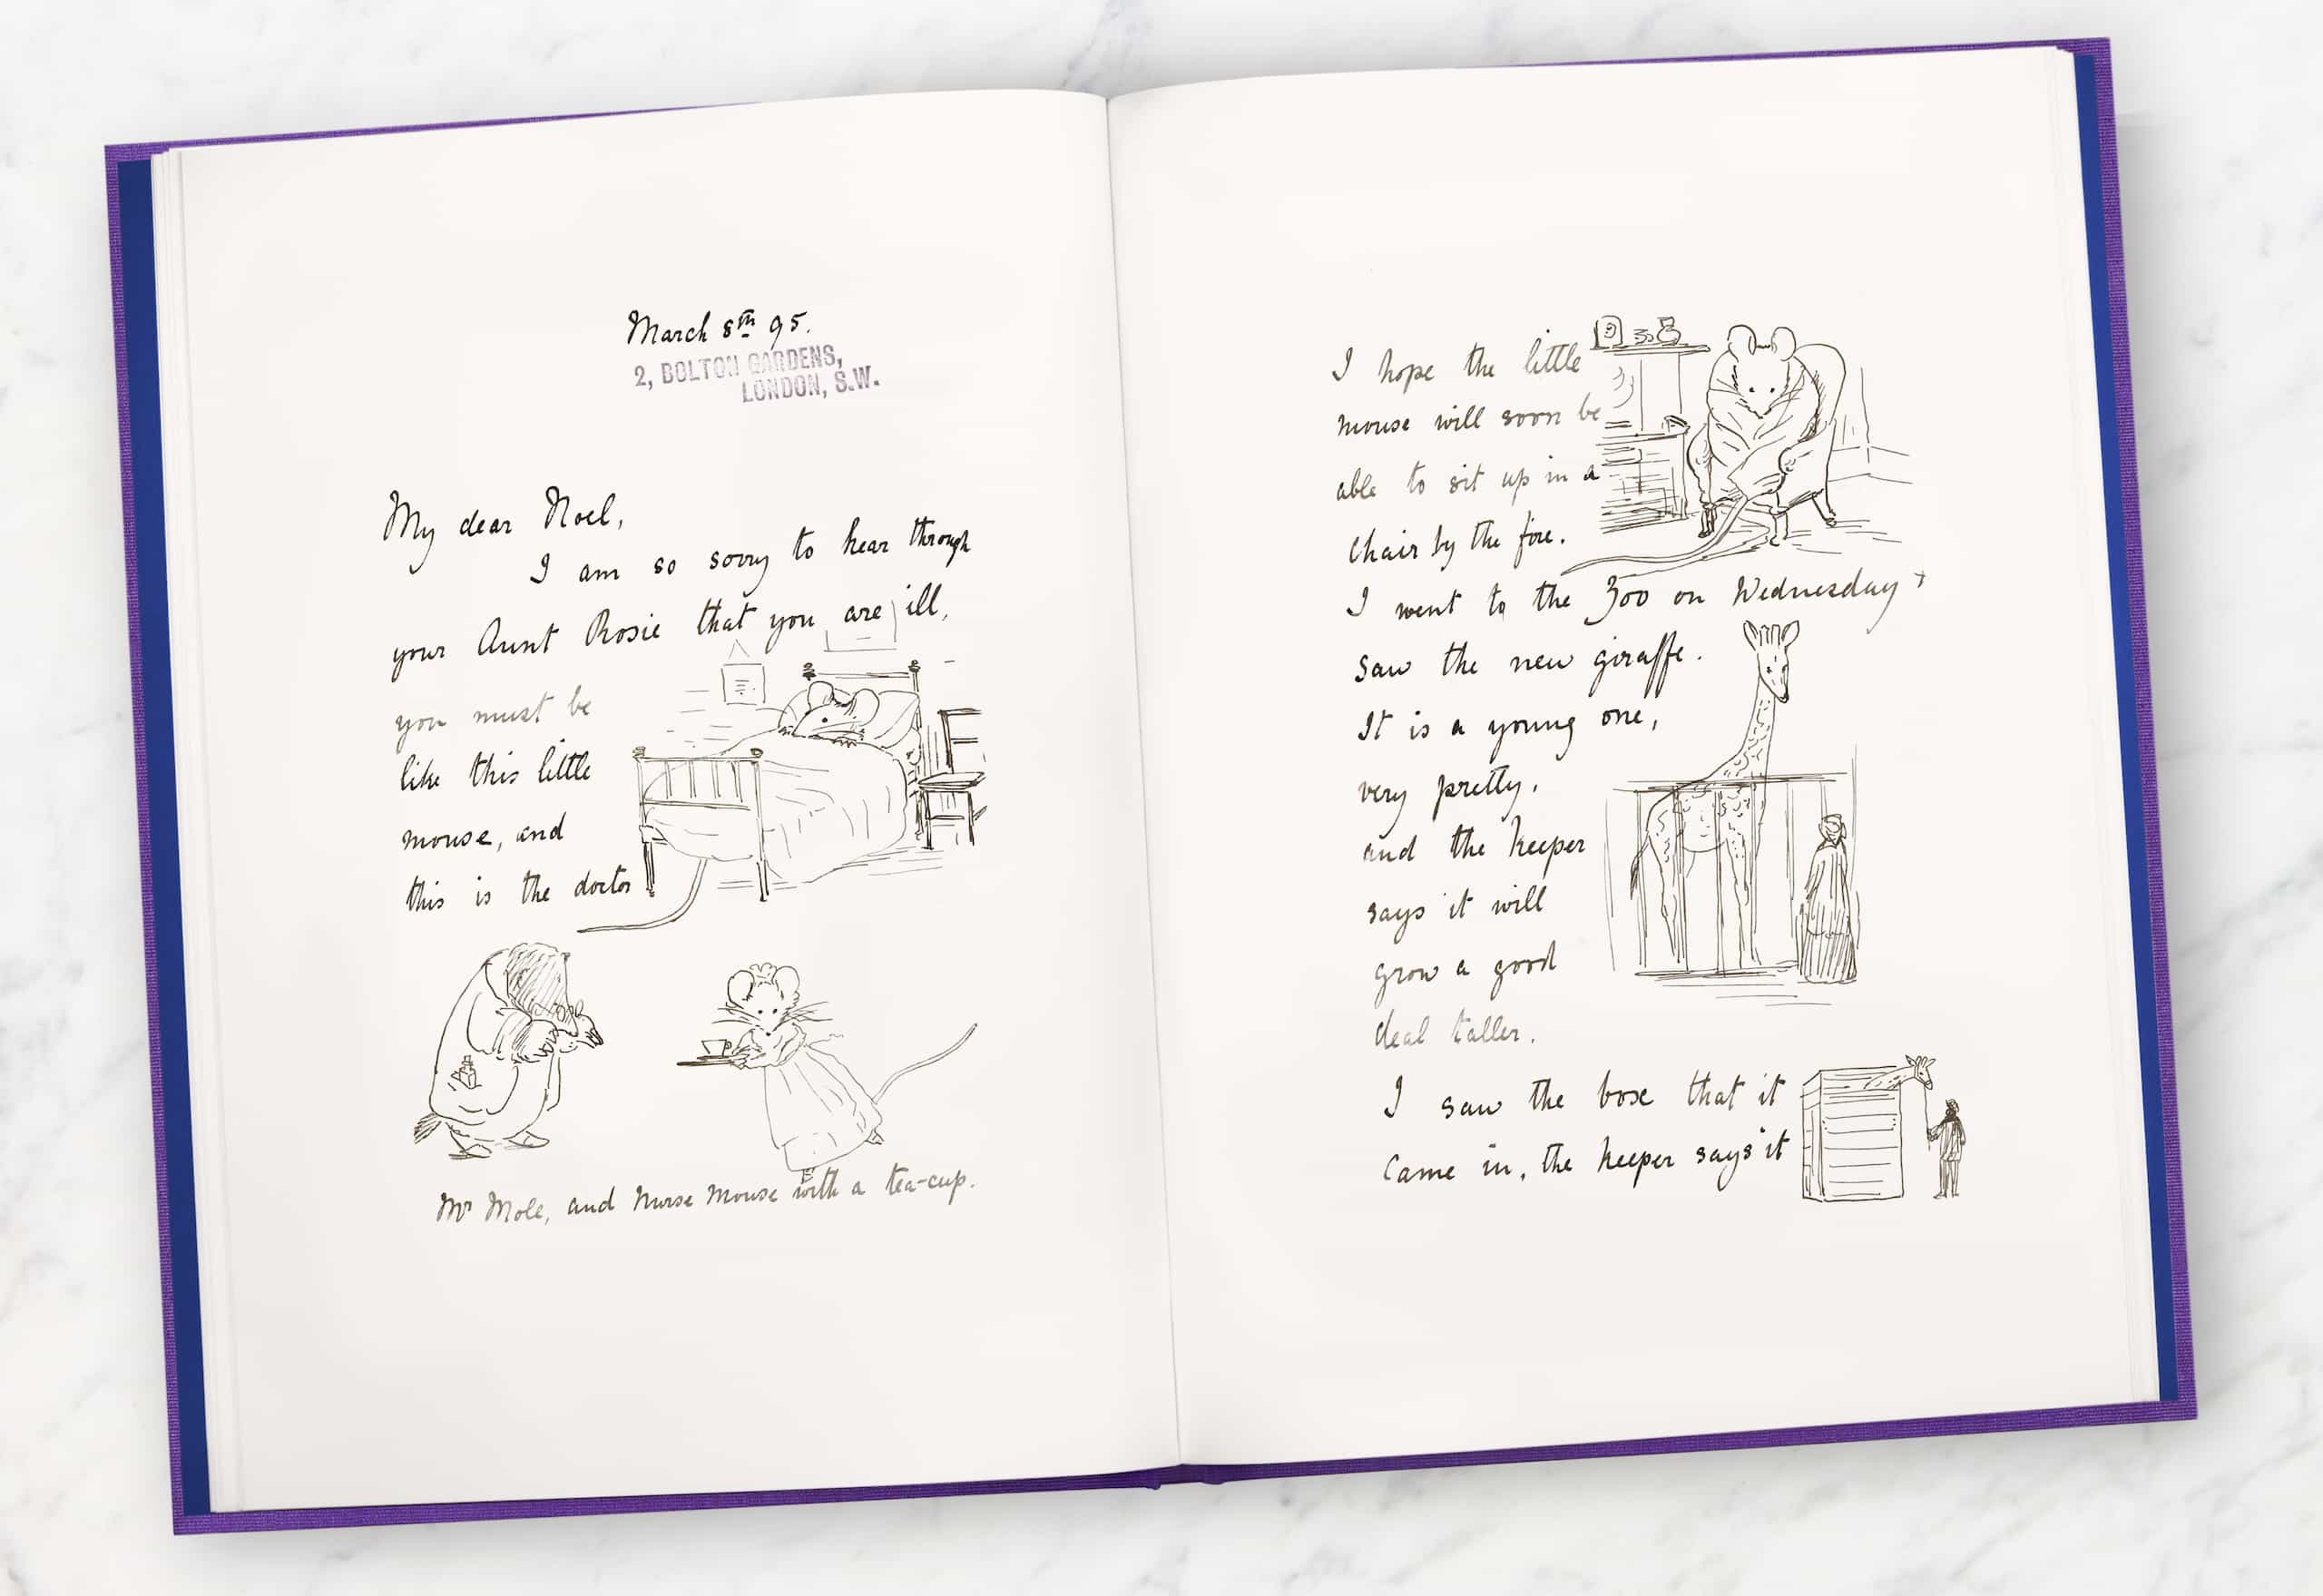 March 8th 95.
2, BOLTON GARDENS,
LONDON, S.W.
My dear Noel,
I am so sorry to hear through
your Aunt Rosie that you are ill,
you must be
like this little
mouse, and
this is the doctor
Mr Mole, and Nurse Mouse with a tea-cup.
I hope the little
mouse will soon be
able to sit up in a
chair by the fire.
I went to the Zoo on Wednesday +
saw the new giraffe.
It is a young one,
very pretty,
and the keeper
says it will
grow a good
deal taller.
I saw the box that it
came in, the keeper says it